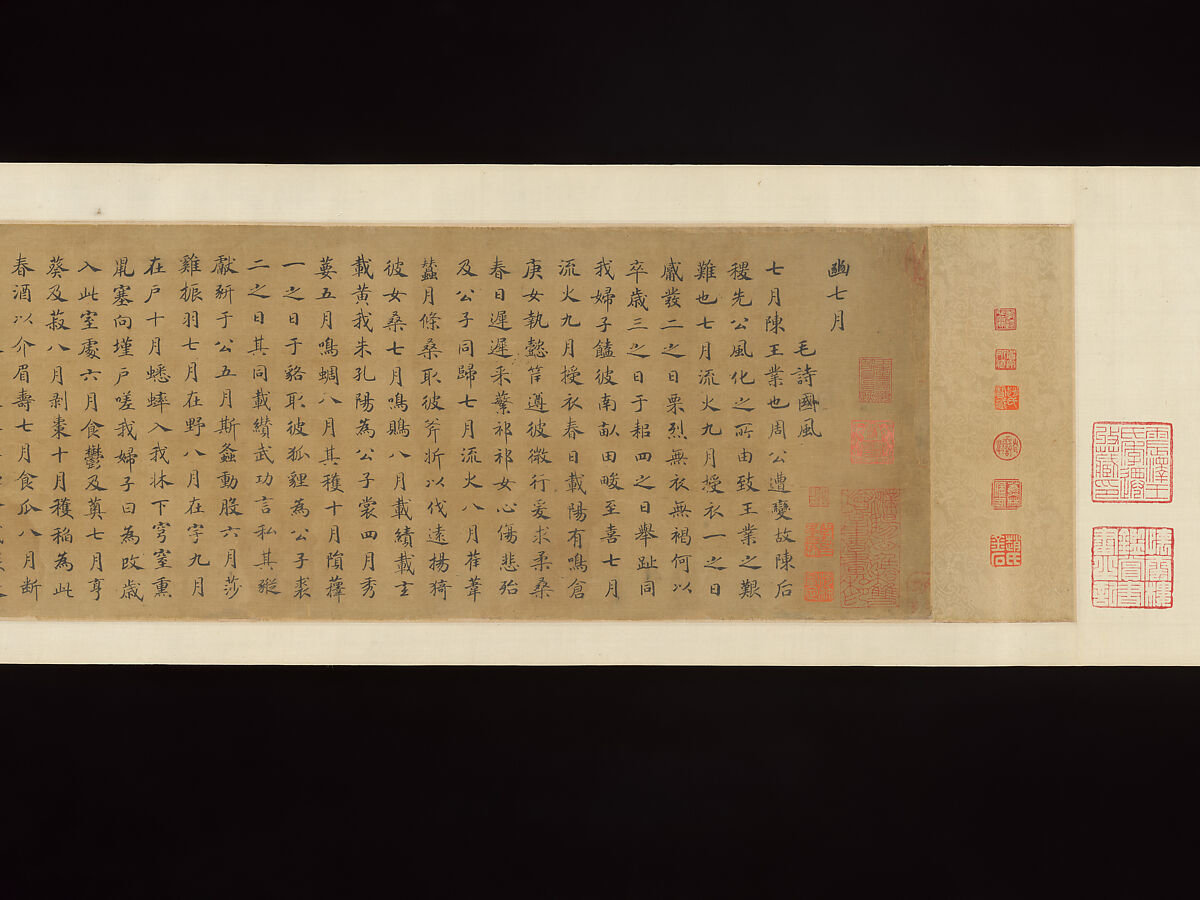 豳七月
毛詩國風
七月陳王業也周公遭變故陳后
稷先公風化之所由致王業之艱
難也七月流火九月授衣一之日
觱發二之日栗烈無衣無褐何以
卒歲三之日于耜四之日舉趾同
我婦子饁彼南畝田畯至喜七月
流火九月授衣春日載陽有鳴倉
庚女執懿筐遵彼微行爰求柔桑
春日遲遲采蘩祁祁女心傷悲殆
及公子同歸七月流火八月萑葦
蠶月條桑取彼斧斨以伐遠揚猗
彼女桑七月鳴鵙八月載績載玄
載黃我朱孔陽為公子裳四月秀
葽五月鳴蜩八月其穫十月隕蘀
一之日于貉取彼狐貍為公子裘
二之日其同載纘武功言私其豵
獻豜于公五月斯螽動股六月莎
雞振羽七月在野八月在宇九月
在戶十月蟋蟀入我牀下穹窒熏
鼠塞向墐戶嗟我婦子曰為改歲
入此室處六月食鬱及薁七月亨
葵及菽八月剝棗十月穫稻為此
春酒以介眉壽七月食瓜八月斷